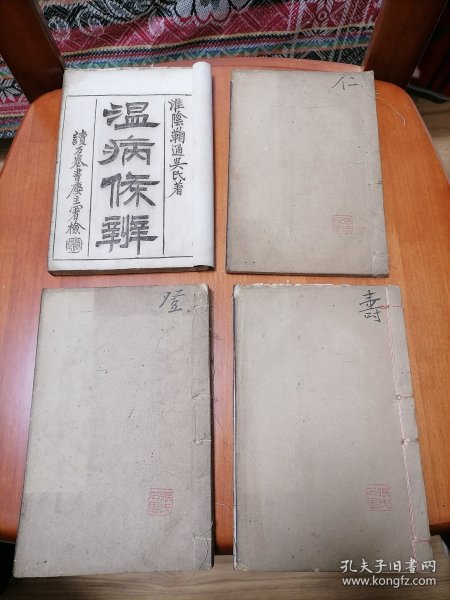 淮陰鞠通吳氏著
温病條辨
讀万卷書慶三署檢
仁
登
壽
孔夫子旧书网
www.kongfz.com